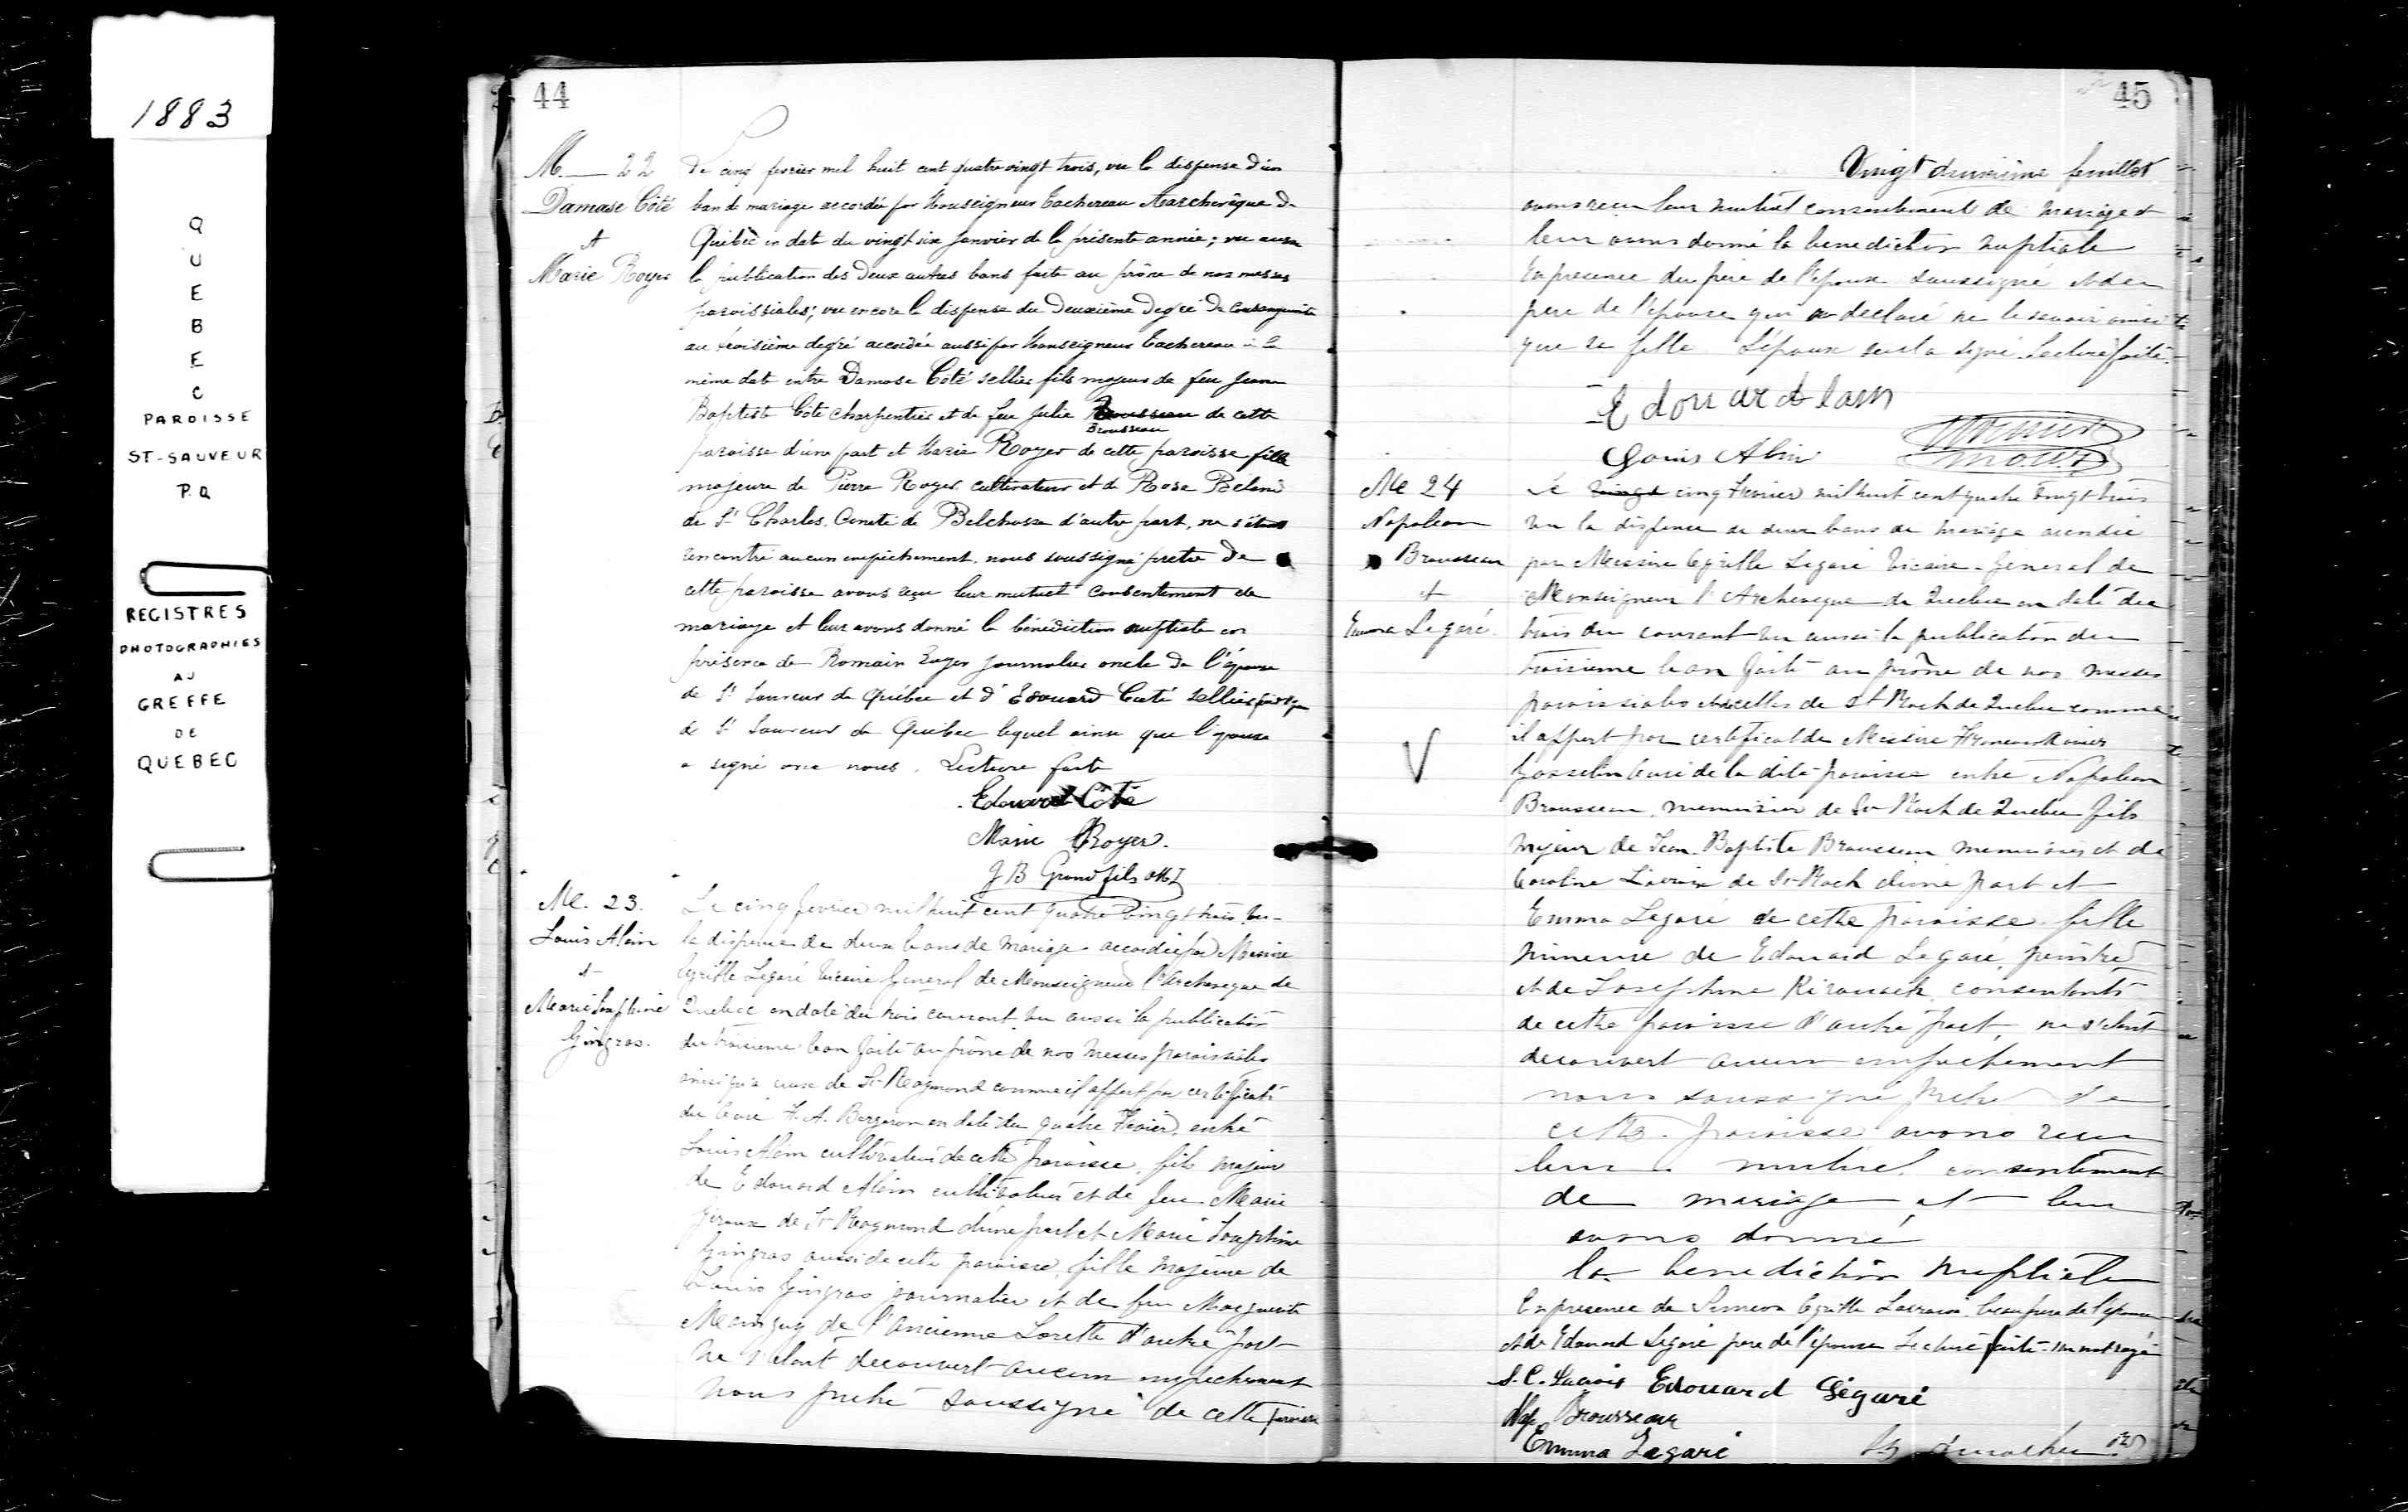 1883
QUEBEC
PAROISSE
ST-SAUVEUR
P.Q
REGISTRES
PHOTOGRAPHIES
AU
GREFFE
DE
QUEBEC
44
M. 22
Damase Côté
et
Marie Royer
Le cinq fevrier mil huit cent quatre vingt trois, vu la dispense d'un
ban de mariage accordée par Monseigneur Tachereau Archevêque de
Québec en date du vingt six janvier de la présente année; vu aussi
la publication des deux autres bans faite au prône de nos messes
paroissiales; vu encore la dispense du deuxième degré de consanguinité
au troisième degré accordée aussi par Monseigneur Tachereau à la
même date entre Damase Côté sellier fils majeur de feu Jean
Baptiste Côté charpentier et de feu Julie Brousseau de cette
Brousseau
paroisse d'une part et Marie Royer de cette paroisse fille
majeure de Pierre Royer cultivateur et de Rose Beland
de St Charles. Comté de Belchasse d'autre part, ne s'étant
rencontré aucun empêchement, nous soussigné pretre de
cette paroisse avons reçu leur mutuel consentement de
mariage et leur avons donné la bénédiction nuptiale en
présence de Romain Royer journalier oncle de l'épouse
de St Sauveur de Québec et d'Edouard Coté sellier
de St Sauveur de Québec lequel ainsi que l'épouse
a signé avec nous. Lecture faite
Edouard Côté
Marie Royer.
J B Grandfils OMI
M. 23.
Louis Alain
et
Marie Josephine
Gingras.
Le cinq fevrier mil huit cent quatre vingt trois, vu
la dispense de deux bans de mariage accordée par Messire
Cyrille Legaré Vicaire General de Monseigneur l'Archeveque de
Quebec en date du trois courant, vu aussi la publication
du troisieme ban faite au prône de nos messes paroissiales
ainsi qu'a ceux de St Raymond comme il appert par certificat
du Curé F. A. Bergeron en date du quatre Fevrier, entre
Louis Alain cultivateur de cette paroisse, fils majeur
de Edouard Alain cultivateur et de feu Marie
Giroux de St Raymond d'une part et Marie Josephine
Gingras aussi de cette paroisse, fille majeure de
Louis Gingras journalier et de feu Marguerite
de l'Ancienne Lorette d'autre part
ne s'etant decouvert aucun empechement
nous pretre soussigné de cette paroisse
45
Vingt deuxième feuillet
avons reçu leur mutuel consentement de mariage et
leur avons donné la benediction nuptiale
En presence du père de l'époux soussigné et du
pere de l'épouse qui a declaré ne le savoir ainsi
que sa fille L'époux seul a signé. Lecture faite.
Edouard alain
Louis Alain
M 24
Napoleon
Brousseau
et
Emma Legaré.
Le vingt cinq Fevrier mil huit cent quatre vingt trois
vu la dispense de deux bans de mariage accordée
par Messire Cyrille Legaré Vicaire-General de
Monseigneur l'Archeveque de Quebec en date du
trois du courant vu aussi la publication du
troisieme ban faite au prône de nos messes
paroissiales et à celles de St Roch de Quebec comme
il appert par certificat de Messire
Gosselin Curé de la dite paroisse entre Napoleon
Brousseau, menuisier de St Roch de Quebec fils
majeur de Jean Baptiste Brousseau menuisier et de
Caroline Lavoie de St Roch d'une part et
Emma Legaré de cette paroisse fille
mineure de Edouard Legaré, peintre
et de Josephine Kirouack consentants
de cette paroisse d'autre part, ne s'etant
decouvert aucun empechement
nous soussigné pretre de
cette paroisse avons reçu
leur mutuel consentement
de mariage et leur
avons donné
la benediction nuptiale
En presence de Simeon Cyrille Lacroix beau pere de l'epoux
et de Edouard Legaré pere de l'épouse Lecture faite. un mot rayé
S. C. Lacroix Edouard Légaré
Nap Brousseau
Emma Legaré